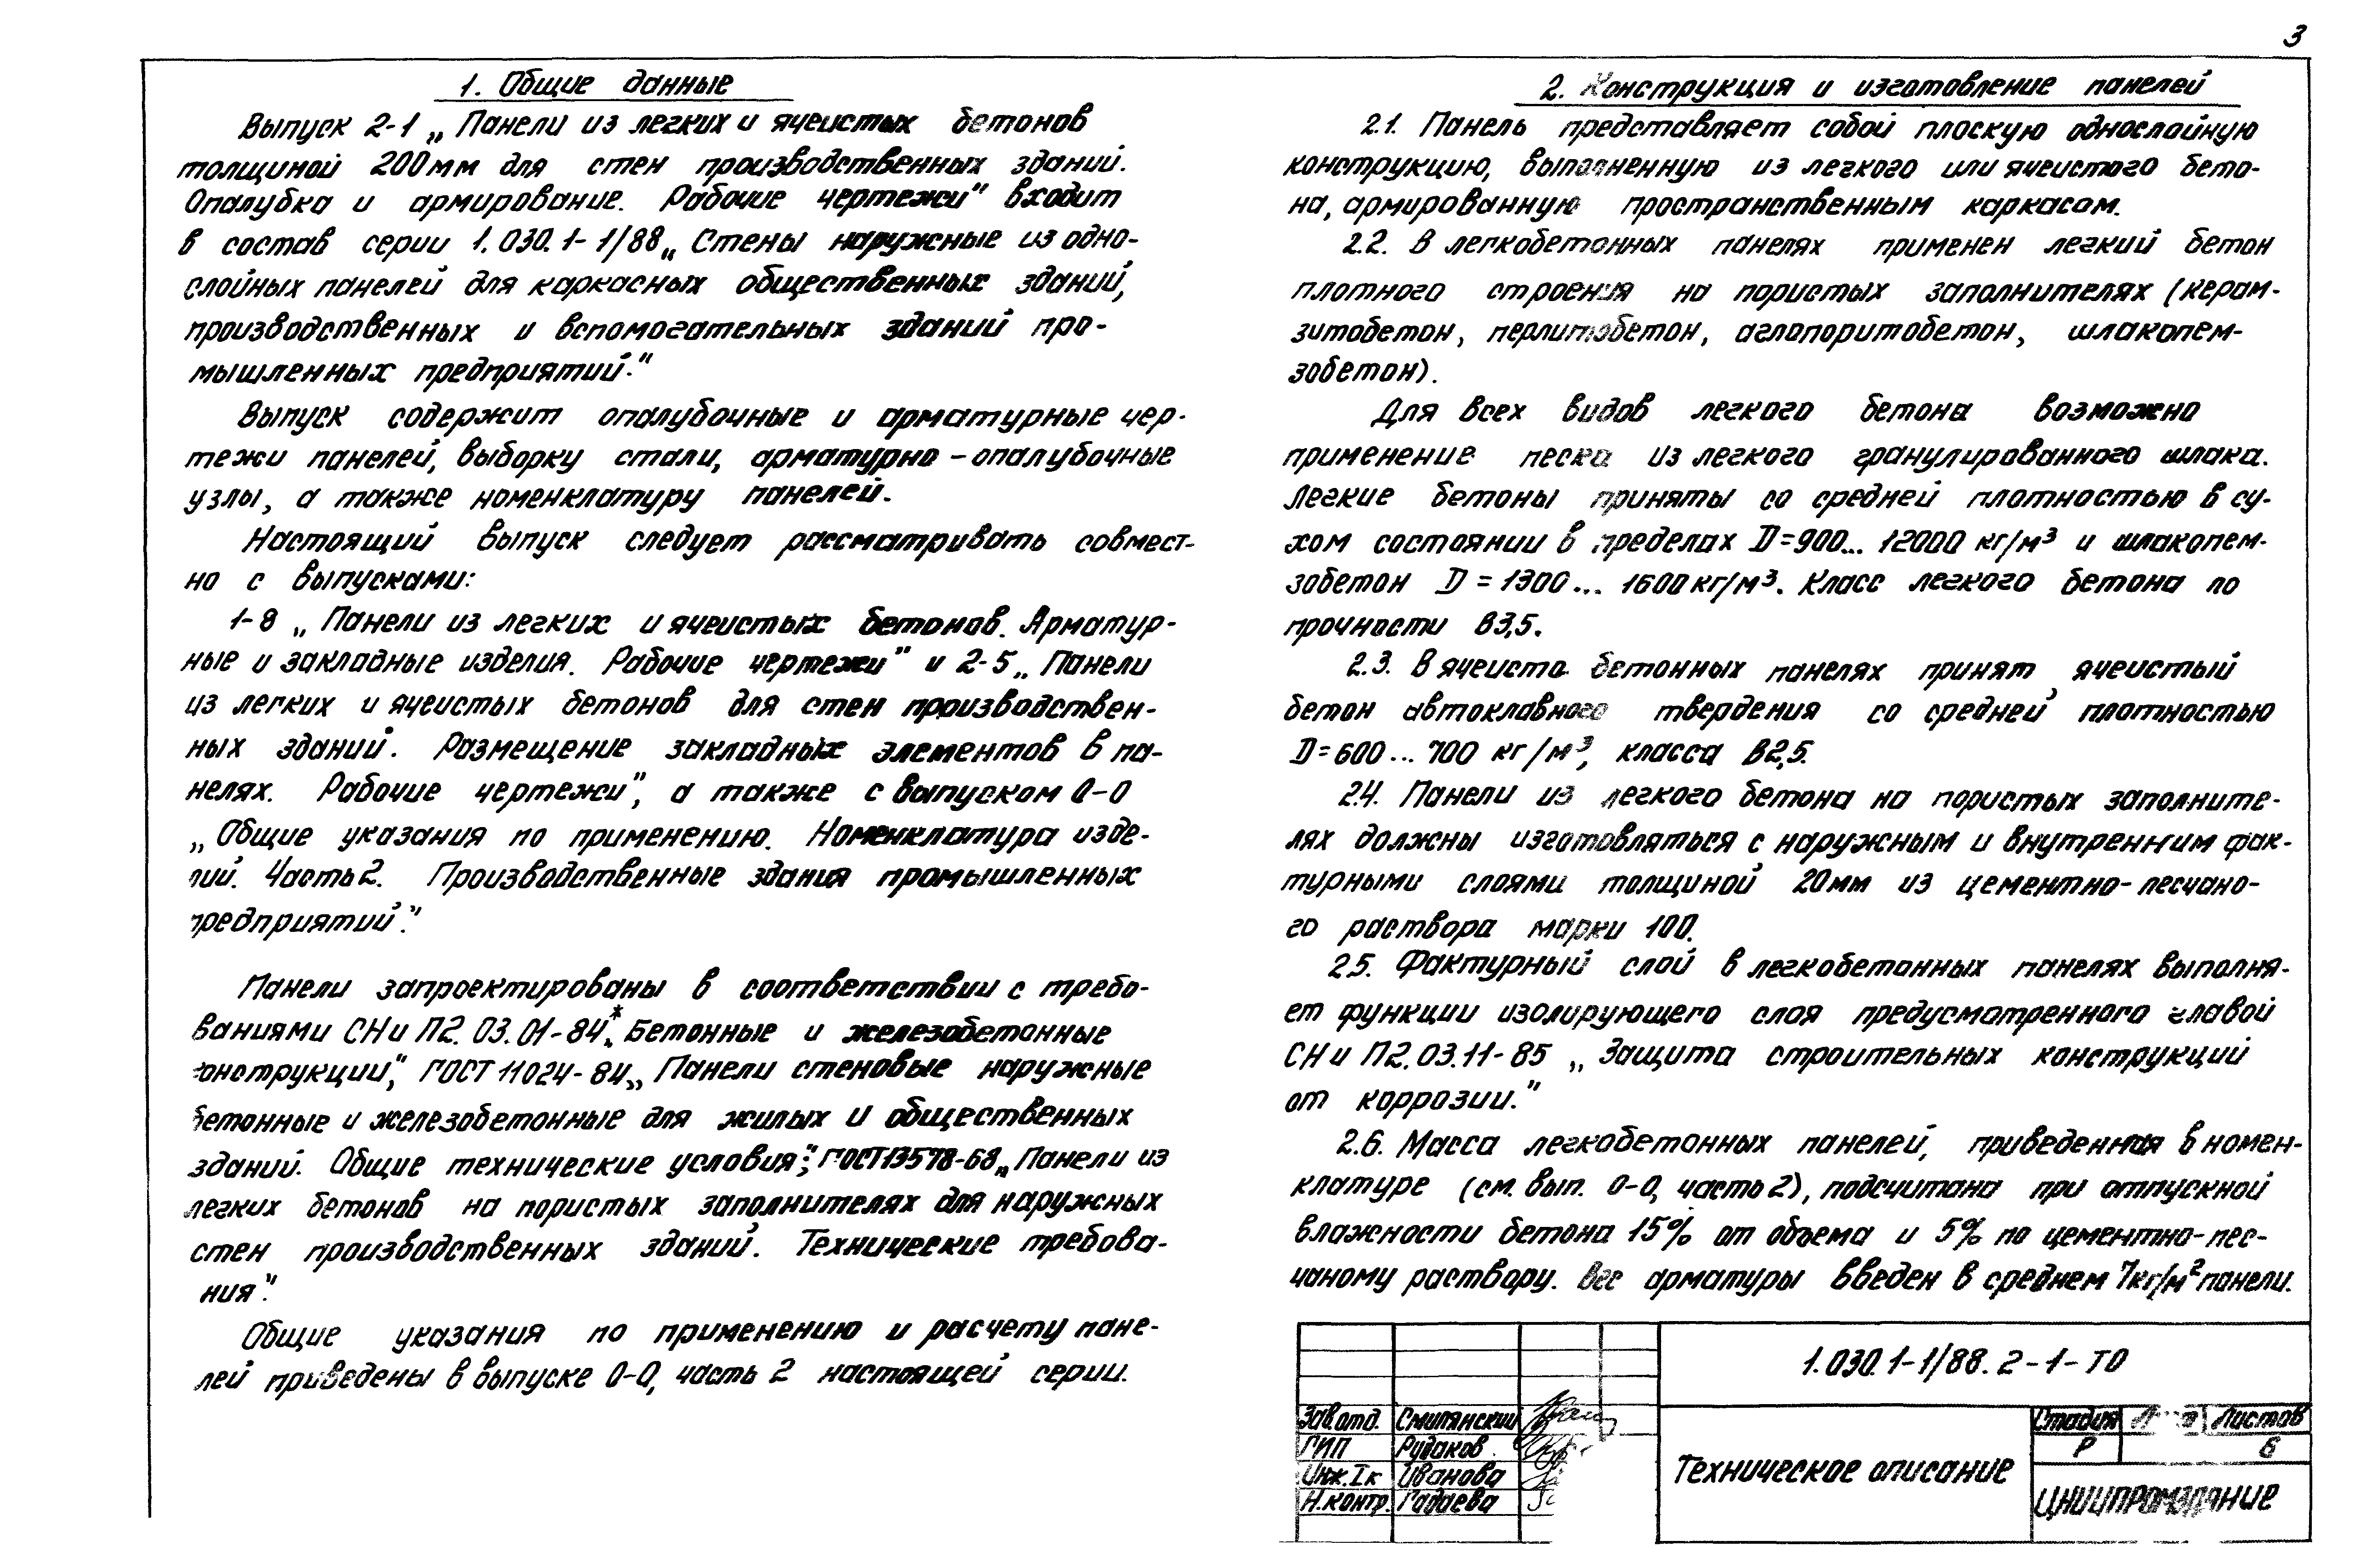 3
1. Общие данные
Выпуск 2-1 „Панели из легких и ячеистых бетонов
толщиной 200мм для стен производственных зданий.
Опалубка и армирование. Рабочие чертежи" входит
в состав серии 1.030.1-1/88 „Стены наружные из одно-
слойных панелей для каркасных общественных зданий,
производственных и вспомогательных зданий про-
мышленных предприятий."
Выпуск содержит опалубочные и арматурные чер-
тежи панелей, выборку стали, арматурно-опалубочные
узлы, а также номенклатуру панелей.
Настоящий выпуск следует рассматривать совмест-
но с выпусками:
1-8 „Панели из легких и ячеистых бетонов. Арматур-
ные и закладные изделия. Рабочие чертежи" и 2-5 „Панели
из легких и ячеистых бетонов для стен производствен-
ных зданий. Размещение закладных элементов в па-
нелях. Рабочие чертежи", а также с выпуском 0-0
„Общие указания по применению. Номенклатура изде-
лий. Часть 2. Производственные здания промышленных
предприятий."
Панели запроектированы в соответствии с требо-
ваниями СНиП2.03.01-84* „Бетонные и железобетонные
конструкции", ГОСТ 11024-84 „Панели стеновые наружные
бетонные и железобетонные для жилых и общественных
зданий. Общие технические условия"; ГОСТ 13578-68 „Панели из
легких бетонов на пористых заполнителях для наружных
стен производственных зданий. Технические требова-
ния."
Общие указания по применению и расчету пане-
лей приведены в выпуске 0-0, часть 2 настоящей серии.
2. Конструкция и изготовление панелей
2.1. Панель представляет собой плоскую однослойную
конструкцию, выполненную из легкого или ячеистого бето-
на, армированную пространственным каркасом.
2.2. В легкобетонных панелях применен легкий бетон
плотного строения на пористых заполнителях (керам-
зитобетон, перлитобетон, аглопоритобетон, шлакопем-
зобетон).
Для всех видов легкого бетона возможно
применение песка из легкого гранулированного шлака.
Легкие бетоны приняты со средней плотностью в су-
хом состоянии в пределах D=900... 12000 кг/м³ и шлакопем-
зобетон D = 1300... 1600 кг/м³. Класс легкого бетона по
прочности В3,5.
2.3. В ячеисто бетонных панелях принят ячеистый
бетон автоклавного твердения со средней плотностью
D=600... 700 кг/м³, класса В2,5.
2.4. Панели из легкого бетона на пористых заполните-
лях должны изготовляться с наружным и внутренним фак-
турными слоями толщиной 20мм из цементно-песчано-
го раствора марки 100.
2.5. Фактурный слой в легкобетонных панелях выполня-
ет функции изолирующего слоя предусмотренного главой
СНиП2.03.11-85 „Защита строительных конструкций
от коррозии."
2.6. Масса легкобетонных панелей, приведенная в номен-
клатуре (см. вып. 0-0, часть 2), подсчитана при отпускной
влажности бетона 15% от объема и 5% по цементно-пес-
чаному раствору. Вес арматуры введен в среднем 7кг/м² панели.
1.030.1-1/88.2-1-ТО
Зав.отд. Смилянский
ГИП Рудаков
Инж.Iк Иванова
Н.контр. Гадаева
Техническое описание
Стадия Листов
Р 6
ЦНИИПРОМЗДАНИЕ